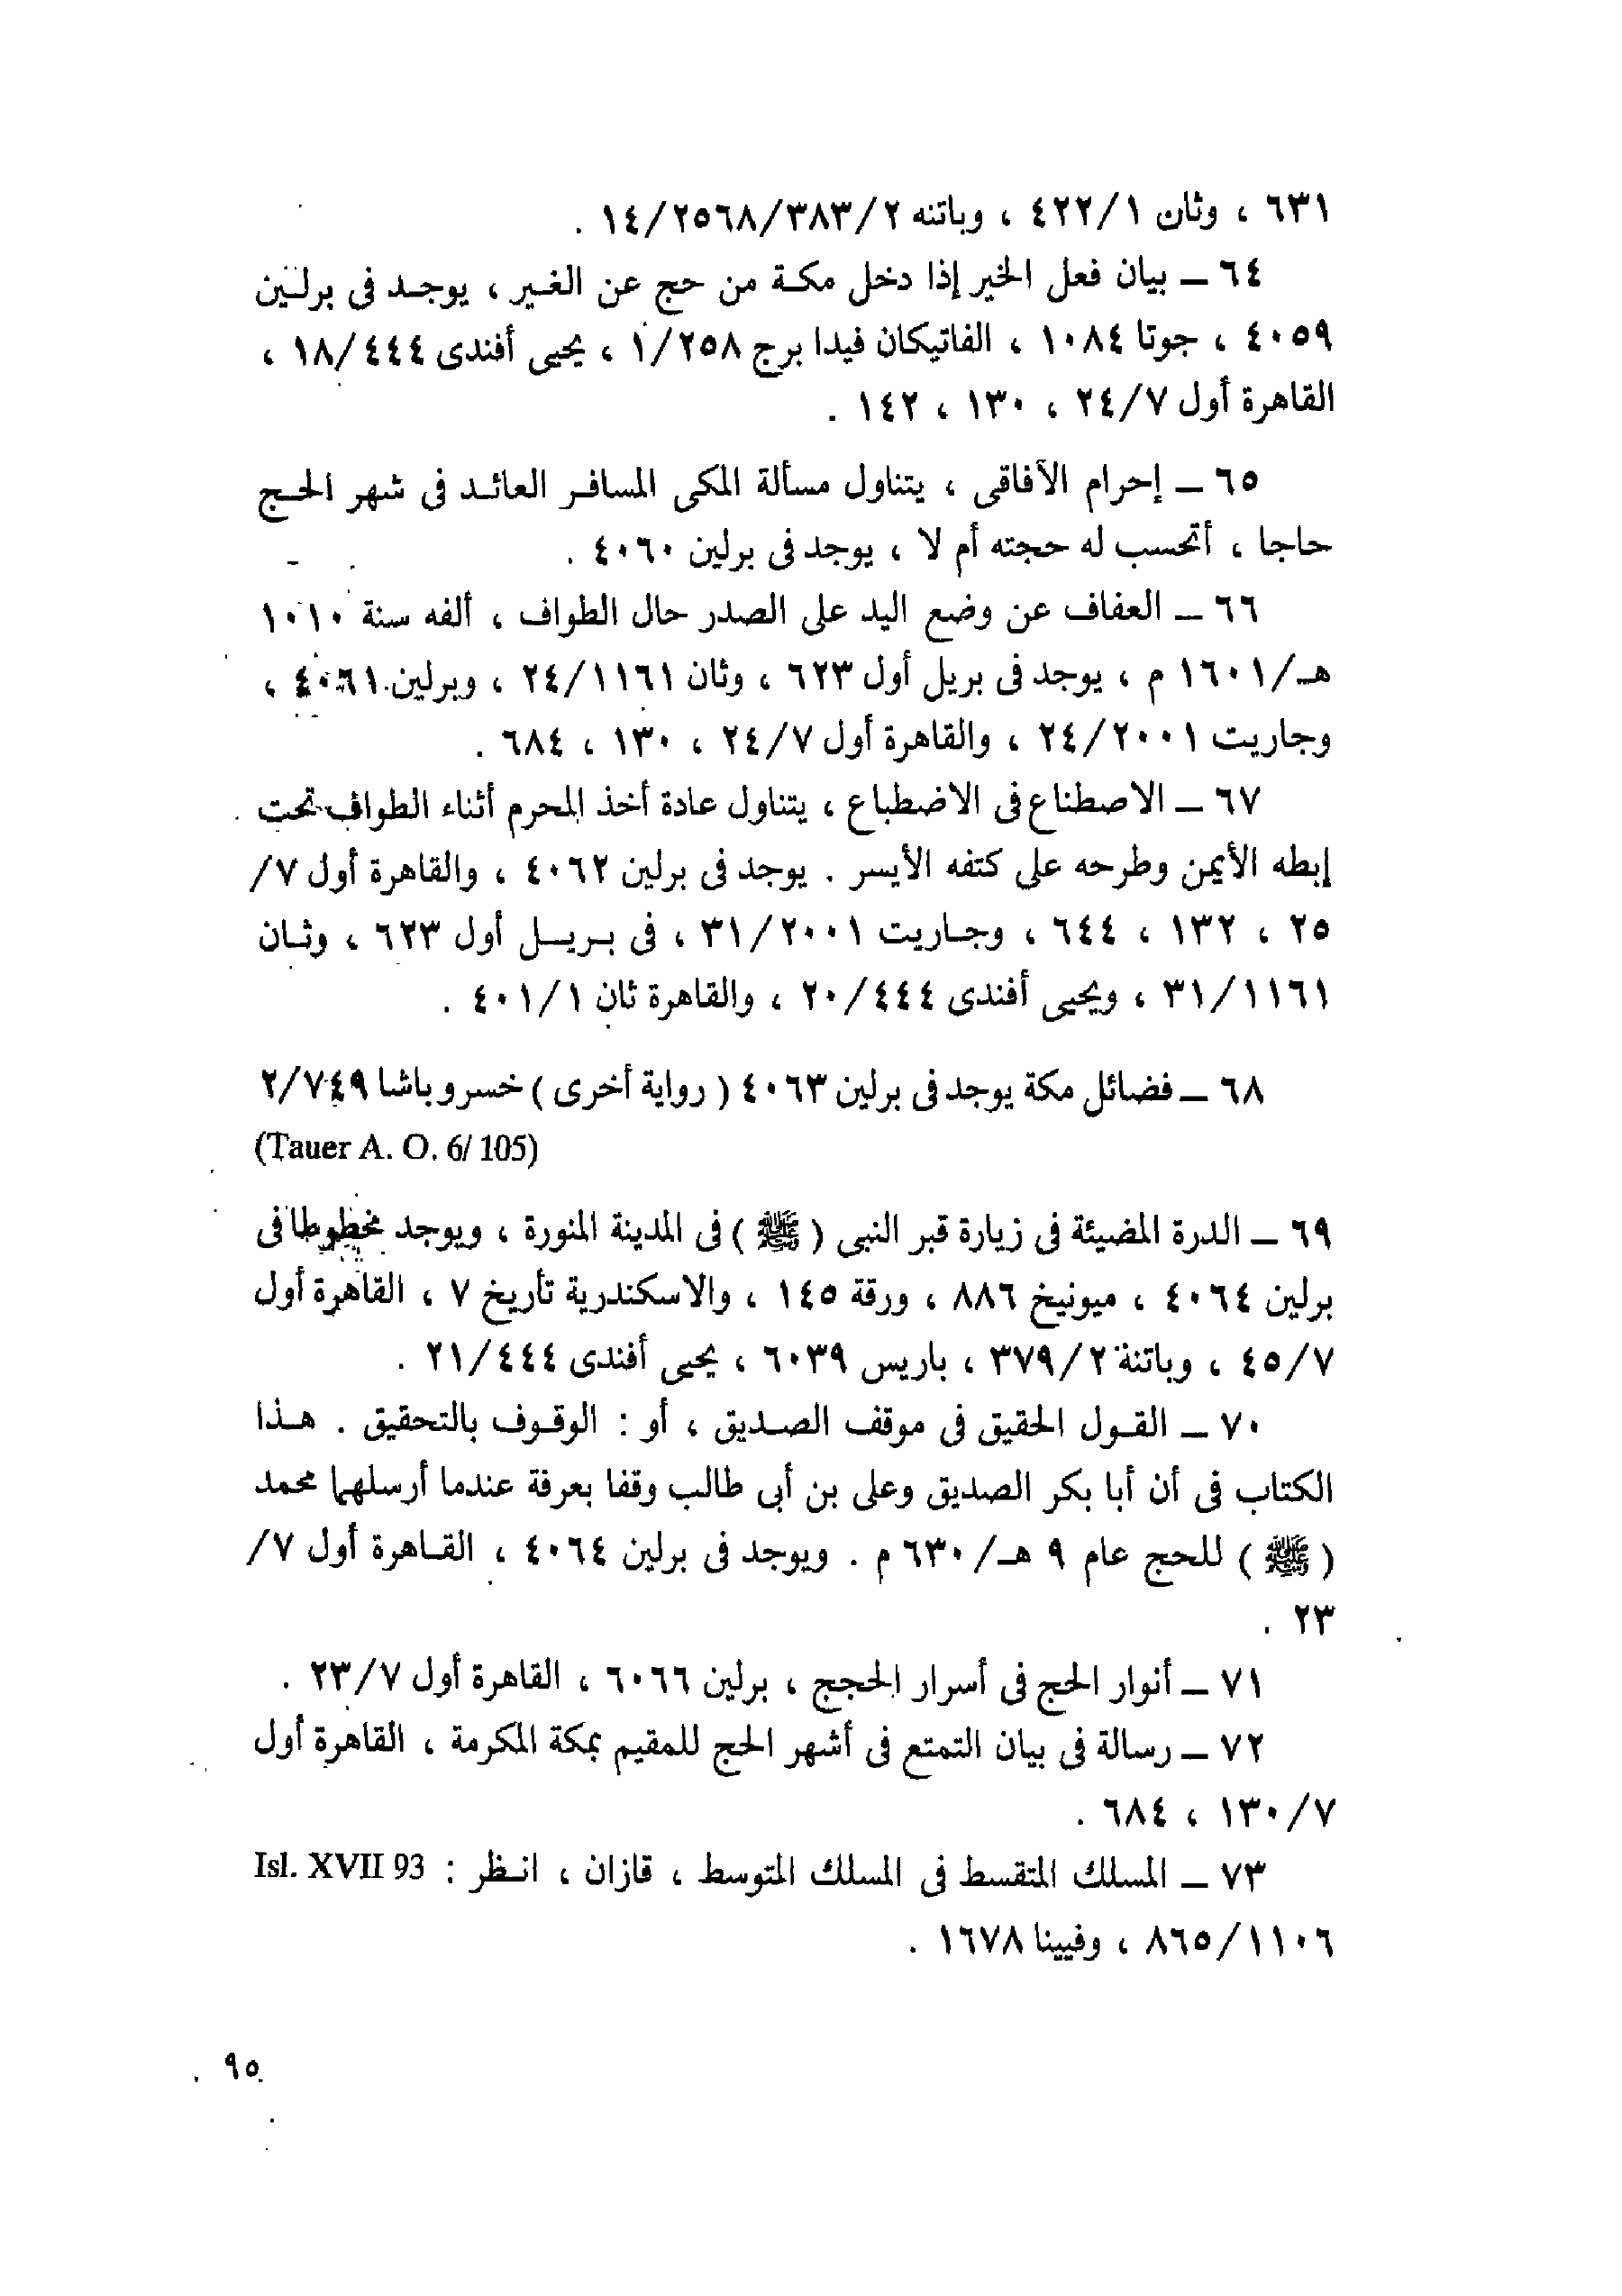 ٦٣١ ، وثان ٤٢٢/١ ، وباتنه ١٤/٢٥٦٨/٣٨٣/٢ .
٦٤ ــ بيان فعل الخير إذا دخل مكة من حج عن الغير ، يوجد فى برلين
٤٠٥٩ ، جوتا ١٠٨٤ ، الفاتيكان فيدا برج ١/٢٥٨ ، يحيى أفندى ١٨/٤٤٤ ،
القاهرة أول ٢٤/٧ ، ١٣٠ ، ١٤٢ .
٦٥ ــ إحرام الآفاقى ، يتناول مسألة المكى المسافر العائد فى شهر الحج
حاجا ، أتحسب له حجته أم لا ، يوجد فى برلين ٤٠٦٠ .
٦٦ ــ العفاف عن وضع اليد على الصدر حال الطواف ، ألفه سنة ١٠١٠
هـ/١٦٠١ م ، يوجد فى بريل أول ٦٢٣ ، وثان ٢٤/١١٦١ ، وبرلين ٤٠٦١ ،
وجاريت ٢٤/٢٠٠١ ، والقاهرة أول ٢٤/٧ ، ١٣٠ ، ٦٨٤ .
٦٧ ــ الاصطناع فى الاضطباع ، يتناول عادة أخذ المحرم أثناء الطواف تحت
إبطه الأيمن وطرحه على كتفه الأيسر . يوجد فى برلين ٤٠٦٢ ، والقاهرة أول ٧/
٢٥ ، ١٣٢ ، ٦٤٤ ، وجاريت ٣١/٢٠٠١ ، فى بريل أول ٦٢٣ ، وثان
٣١/١١٦١ ، ويحيى أفندى ٢٠/٤٤٤ ، والقاهرة ثان ٤٠١/١ .
٦٨ ــ فضائل مكة يوجد فى برلين ٤٠٦٣ ( رواية أخرى ) خسرو باشا ٢/٧٤٩
(Tauer A. O. 6/ 105)
٦٩ ــ الدرة المضيئة فى زيارة قبر النبى ( ﷺ ) فى المدينة المنورة ، ويوجد مخطوطا فى
برلين ٤٠٦٤ ، ميونيخ ٨٨٦ ، ورقة ١٤٥ ، والاسكندرية تأريخ ٧ ، القاهرة أول
٤٥/٧ ، وباتنة ٣٧٩/٢ ، باريس ٦٠٣٩ ، يحيى أفندى ٢١/٤٤٤ .
٧٠ ــ القول الحقيق فى موقف الصديق ، أو : الوقوف بالتحقيق . هذا
الكتاب فى أن أبا بكر الصديق وعلى بن أبى طالب وقفا بعرفة عندما أرسلهما محمد
( ﷺ ) للحج عام ٩ هـ/٦٣٠ م . ويوجد فى برلين ٤٠٦٤ ، القاهرة أول ٧/
٢٣ .
٧١ ــ أنوار الحج فى أسرار الحجج ، برلين ٦٠٦٦ ، القاهرة أول ٢٣/٧ .
٧٢ ــ رسالة فى بيان التمتع فى أشهر الحج للمقيم بمكة المكرمة ، القاهرة أول
١٣٠/٧ ، ٦٨٤ .
٧٣ ــ المسلك المتقسط فى المسلك المتوسط ، قازان ، انظر : Isl. XVII 93
٨٦٥/١١٠٦ ، وفيينا ١٦٧٨ .
٩٥